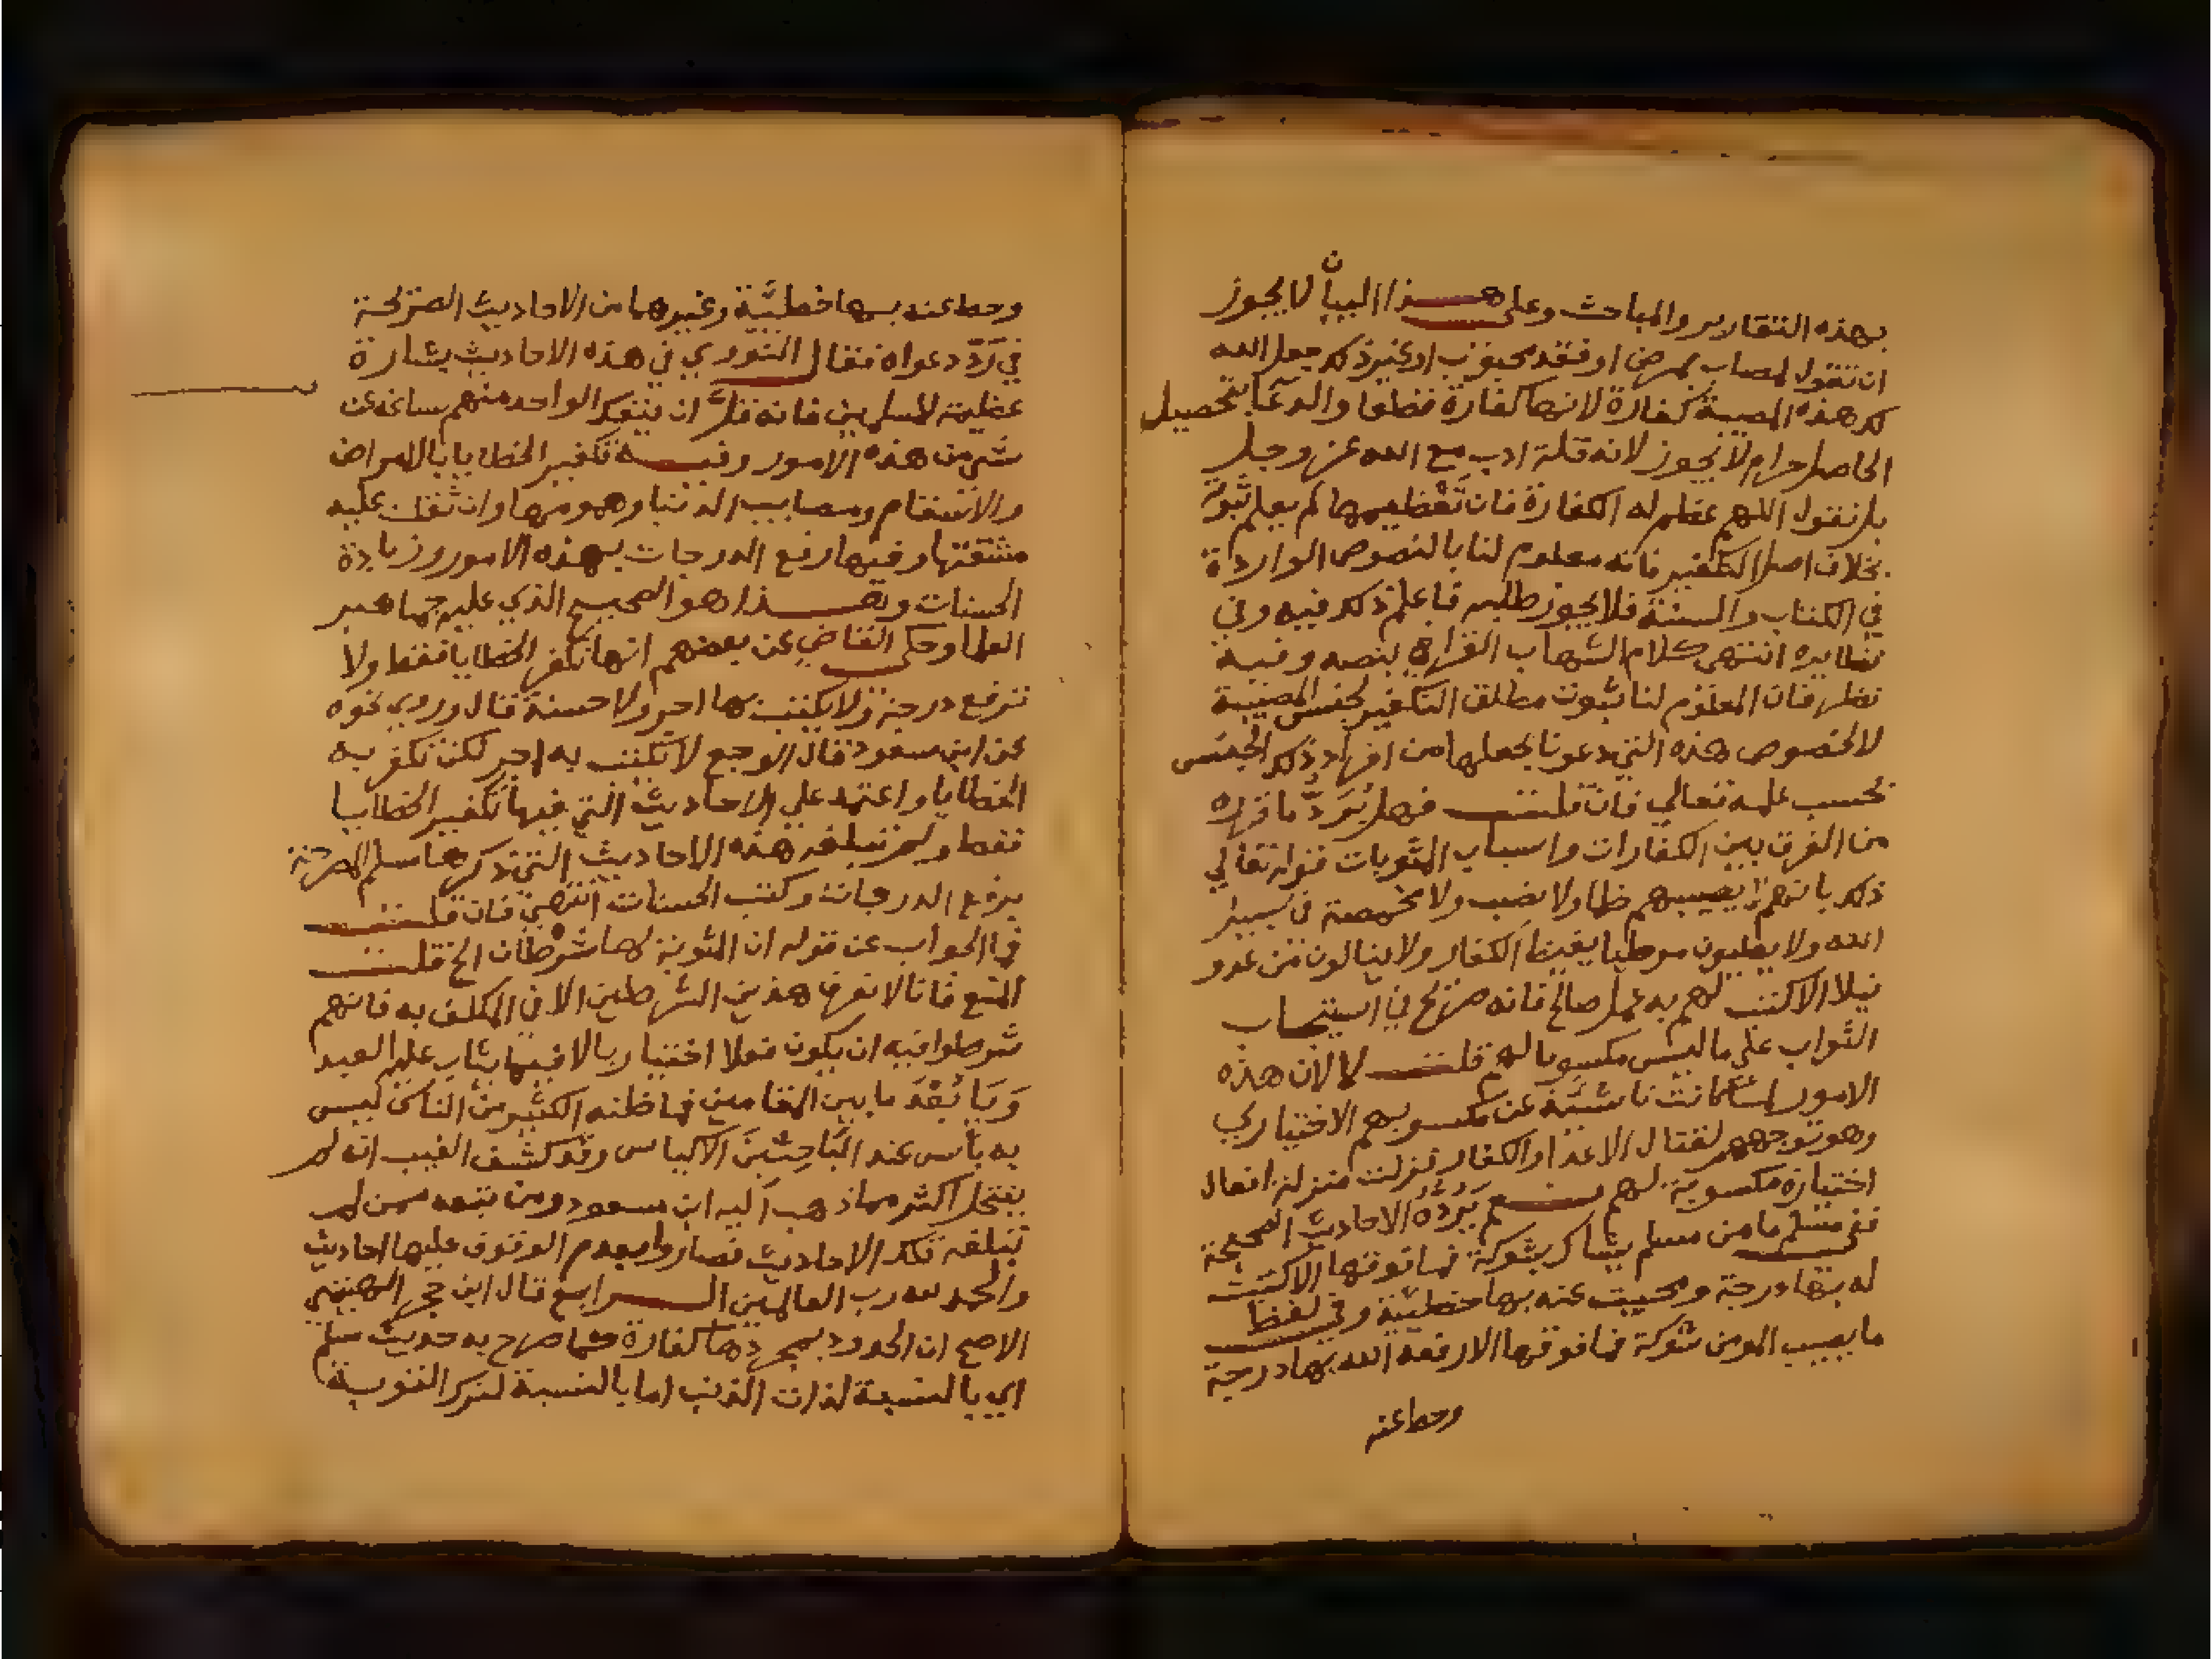 بهذه التقارير والمباحث وعلى هذا البيان لا يجوز
ان تقول لمصاب بمرض او فقد محبوب او غير ذلك جعل الله
لك هذه المصيبة كفارة لانها كفارة قطعا والدعا بتحصيل
الحاصل حرام لا يجوز لانه قلة ادب مع الله عز وجل
بل تقول اللهم عظم له الكفارة فان تعظيمها لم يعلم ثبوته
بخلاف اصل التكفير فانه معلوم لنا بالنصوص الواردة
في الكتاب والسنة فلا يجوز طلبه فاعلم ذلك فيه وفي
نظايره انتهى كلام الشهاب القرافي بنصه وفيه
نظر فان المعلوم لنا ثبوت مطلق التكفير لجنس المصيبة
لا لخصوص هذه التي دعونا بجعلها من افراد ذلك الجنس
بحسب علمه تعالي فان قلت فهل يرد ما قرره
من الفرق بين الكفارات واسباب المثوبات قوله تعالي
ذلك بانهم لا يصيبهم ظما ولا نصب ولا مخمصة في سبيل
الله ولا يطيون موطيا يغيظ الكفار ولا ينالون من عدو
نيلا الا كتب لهم به عمل صالح فانه صريح في استيجاب
الثواب علي ما ليس مكسوبا له قلت لا لان هذه
الامور لما كانت ناشئة عن مكسوبهم الاختياري
وهو توجههم لقتال الاعدا والكفار نزلت منزلة افعال
اختيارية مكسوبة لهم نعم يرده الاحاديث الصحيحة
ففي مسلم ما من مسلم يشاك بشوكة فما فوقها الا كتبت
له بها درجة ومحيت عنه بها خطيئة وفي لفظ
ما يصيب المومن شوكة فما فوقها الا رفعه الله بها درجة
وحط عنه
وحط عنه بها خطيئة وغيرهما من الاحاديث الصريحة
في رد دعواه فقال النووي في هذه الاحاديث بشارة
عظيمة للمسلمين فانه قل ان ينفك الواحد منهم ساعة عن
شي من هذه الامور وفيه تكفير الخطايا بالامراض
والاسقام ومصايب الدنيا وهمومها وان قلت عليه
مشقتها وفيها رفع الدرجات بهذه الامور وزيادة
الحسنات وهذا هو الصحيح الذي عليه جماهير
العلما وحكى القاضي عن بعضهم انها تكفر الخطايا فقط ولا
ترفع درجة ولا يكتب بها اجر ولا حسنة قال وروي نحوه
عن ابن مسعود قال الوجع لا تكتب به اجر لكن تكفر به
الخطايا واعتمد علي الاحاديث التي فيها تكفير الخطايا
فقط ولم تبلغه هذه الاحاديث التي ذكرها مسلم المصرحة
برفع الدرجات وكتب الحسنات انتهى فان قلت
في الجواب عن قوله ان المثوبة لها شرطان الخ قلت
المنع فانا لا نعرف هذين الشرطين الا في المكلف به فانهم
شرطوا فيه ان يكون فعلا اختياريا لا فيما يثاب عليه العبد
ويا بعد ما بين المقامين فما ظنه الكثير من الناس ليس
به بأس عند الباحثين الاكياس وقد كشف الغيب انه لم
ينتحل اكثر مما ذهب اليه ابن مسعود ومن تبعه ممن لم
تبلغه تلك الاحاديث فصاروا بعدم الوقوف عليها احاديث
والحمد لله رب العالمين الرابع قال ابن حجر الهيتمي
الاصح ان الحدود بمجردها كفارة كما صرح به حديث مسلم
اي بالنسبة لذات الذنب اما بالنسبة لترك التوبة